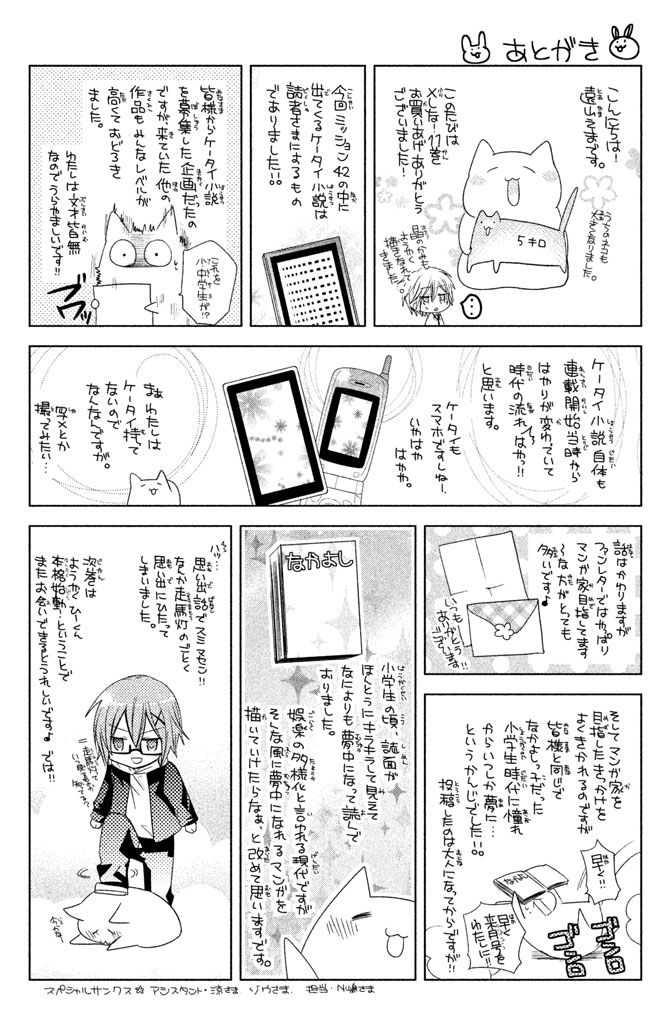 あとがき
こんにちは！
遠山えまです。
このたびは
Xとな！11巻を
お買いあげありがとう
ございました！
うちのネコも
大きくなりました。
5キロ
ようやく
描きなれて
きました…。
…
今回ミッション42の中に
出てくるケータイ小説は
読者さまによるもの
でありました!!
皆様からケータイ小説
を募集した企画だったの
ですが来ていた他の
作品もみんなレベルが
高くておどろき
ました。
わたしは文才皆無
なのでうらやましいです!!
これを
小中学生が!?
ブッ
ケータイ小説自体も
連載開始当時から
はやりが変わっていて
時代の流れはやっ!!
と思います。
ケータイも
スマホですしねー、
いやはや
はやや。
まぁわたしは
ケータイ持って
ないので
なんなんですが。
写メとか
撮ってみたい…
話はかわりますが
ファンレターではやっぱり
マンガ家目指してます
〜な方がとっても
多いです♪
いつも
ありがとう
ございます!!
そしてマンガ家を
目指したきっかけを
よくきかれるのですが
皆様と同じで
なかよしっ子だった
小学生時代に憧れ
からいつしか夢に…
というかんじでした!!
投稿したのは大人になってからですが!!
早く!!
早く
来月号を
わたしに!!
ゴロ
ゴロ
なかよし
小学生の頃、誌面が
ほんとうにキラキラして見えて
なによりも夢中になって読んで
おりました。
娯楽の多様化と言われる現代ですが
そんな風に夢中になれるマンガを
描いていけたらなぁ、と改めて思いますです。
ハッ…
思い出話でスミマセン!!
なんか走馬灯のごとく
思い出にひたって
しまいました。
次巻は
ようやくひーくん
本格始動…ということで
またお会いできるとうれしいですよ♪では!!
スペシャルサンクス☆ アシスタント・涼さま、ゾウさま、 担当・N嶋さま